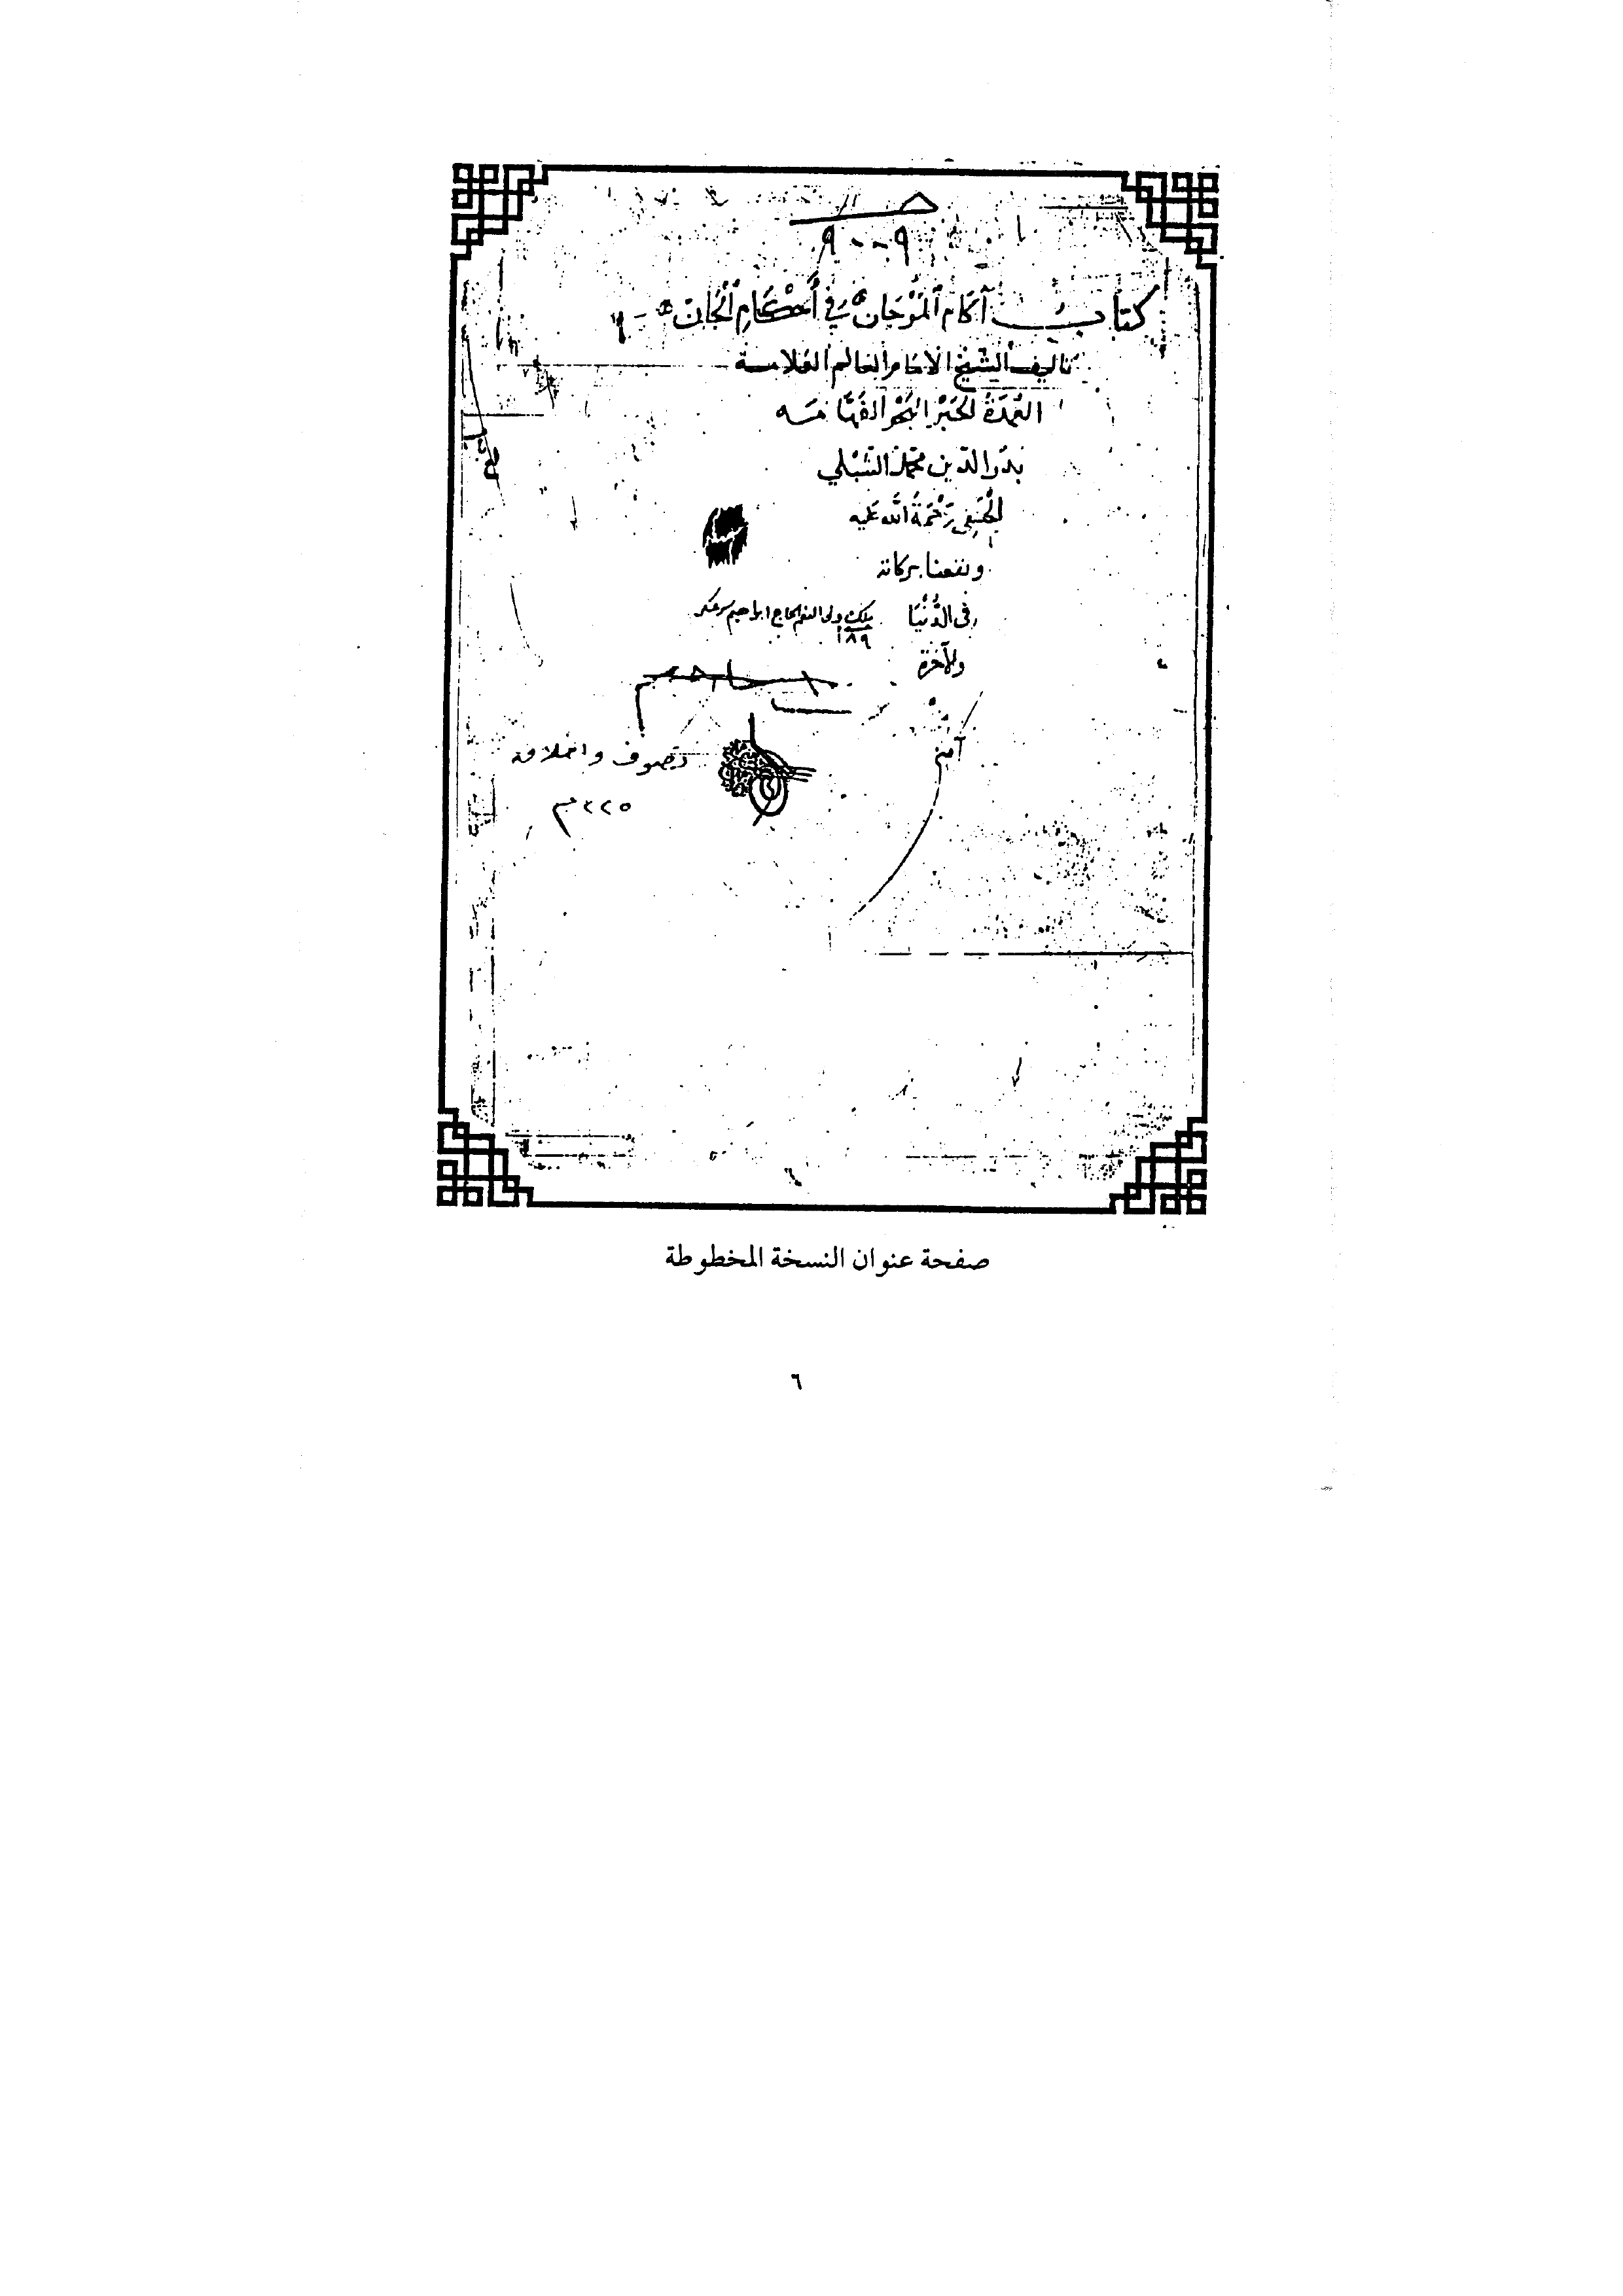 ٩٠٠٩
كتاب آكام المرجان في أحكام الجان
تاليف الشيخ الامام العالم العلامة
العمدة الحبر البحر الفهامه
بدر الدين محمد الشبلي
الحنفي رحمة الله عليه
ونفعنا ببركاته
في الدنيا
والآخرة
ملك ولى النعم الحاج ابراهيم سرعسكر
آمين
تصوف واخلاق
صفحة عنوان النسخة المخطوطة
٦